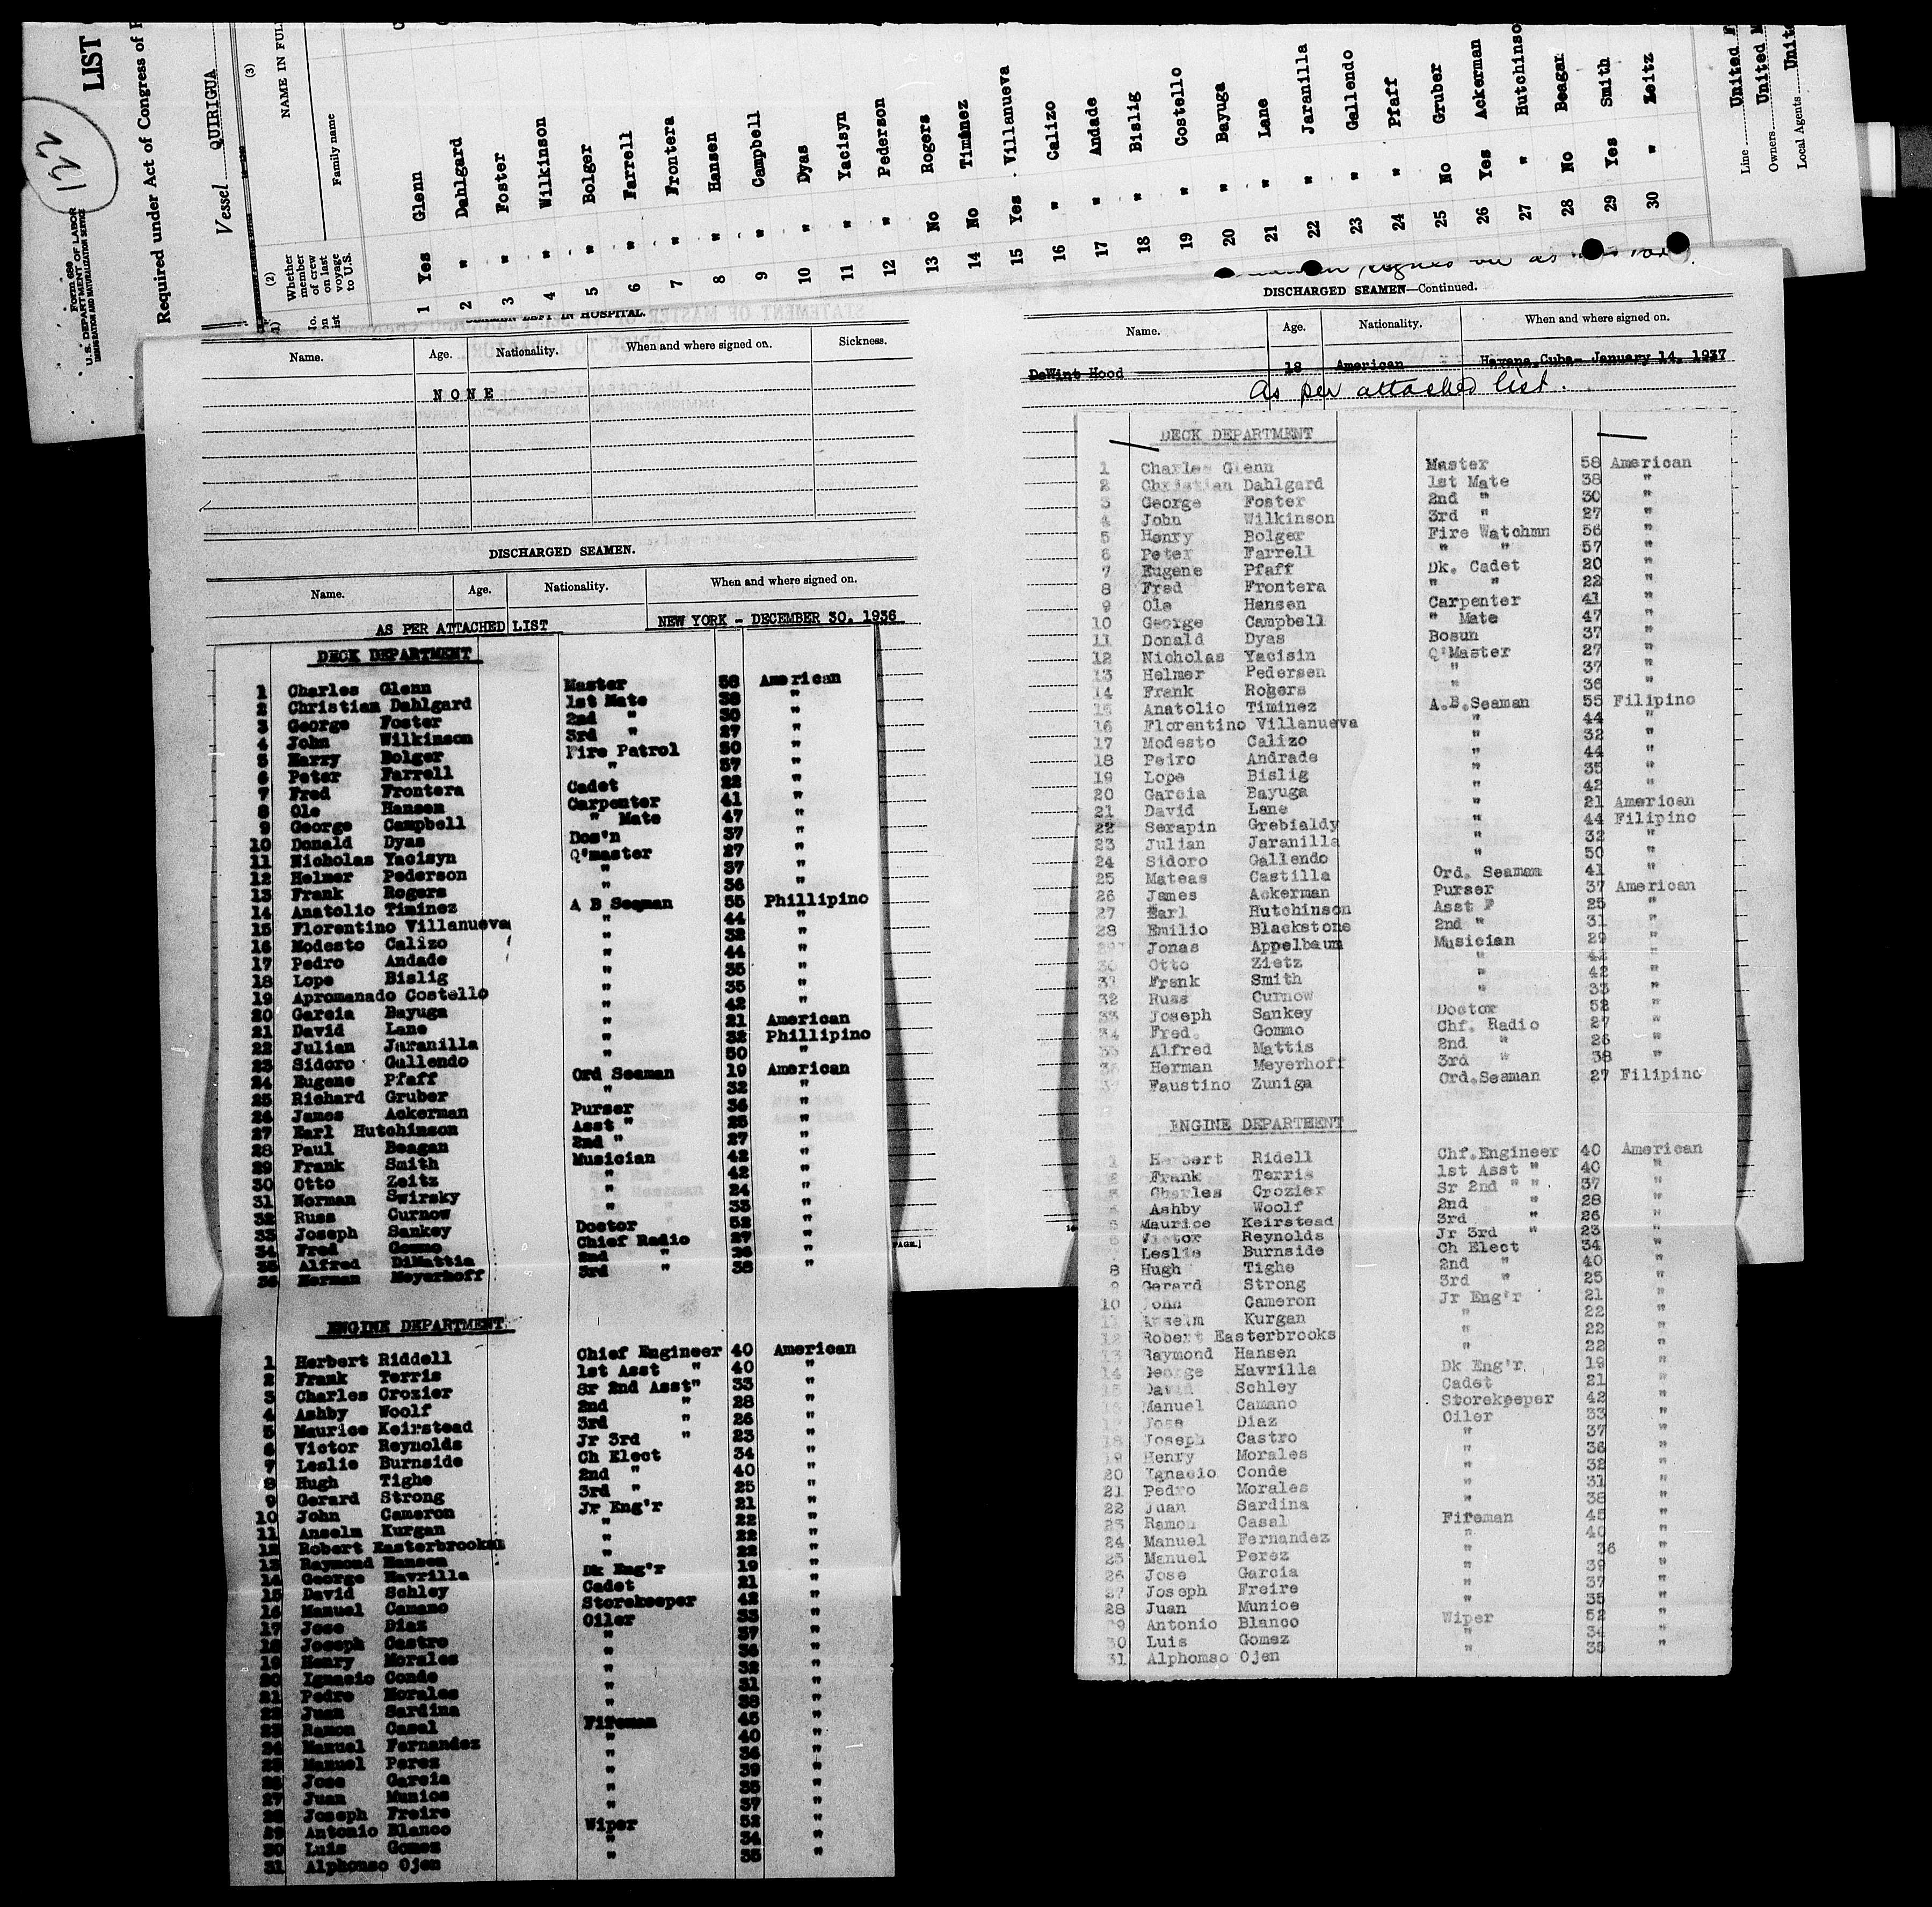 231
Form 689
U.S. DEPARTMENT OF LABOR
IMMIGRATION AND NATURALIZATION SERVICE
LIST
Required under Act of Congress of
Vessel QUIRIGUA
(1) (2) (3)
Whether member of crew on last voyage to U.S.
NAME IN FULL
Family name
1 Yes Glenn
2 " Dahlgard
3 " Foster
4 " Wilkinson
5 " Bolger
6 " Farrell
7 " Frontera
8 " Hansen
9 " Campbell
10 " Dyas
11 " Yacisyn
12 " Pederson
13 No Rogers
14 No Timinez
15 Yes Villanueva
16 " Calizo
17 " Andade
18 " Bislig
19 " Costello
20 " Bayuga
21 " Lane
22 " Jaranilla
23 " Gallendo
24 " Pfaff
25 No Gruber
26 Yes Ackerman
27 " Hutchinso
28 No Beagan
29 Yes Smith
30 " Zeitz
Line United
Owners United
Local Agents Unit
SEAMEN LEFT IN HOSPITAL.
Name. Age. Nationality. When and where signed on. Sickness.
NONE
DISCHARGED SEAMEN.
Name. Age. Nationality. When and where signed on.
AS PER ATTACHED LIST NEW YORK - DECEMBER 30. 1936
DECK DEPARTMENT
1 Charles Glenn Master 58 American
2 Christian Dahlgard 1st Mate 38 "
3 George Foster 2nd " 30 "
4 John Wilkinson 3rd " 27 "
5 Harry Bolger Fire Patrol 50 "
6 Peter Farrell " 57 "
7 Fred Frontera Cadet 22 "
8 Ole Hansen Carpenter 41 "
9 George Campbell " Mate 47 "
10 Donald Dyas Bos'n 37 "
11 Nicholas Yacisyn Q'master 27 "
12 Helmer Pederson " 37 "
13 Frank Rogers " 36 "
14 Anatolio Timinez A B Seaman 55 Phillipino
15 Florentino Villanueva " 44 "
16 Modesto Calizo " 32 "
17 Pedro Andade " 44 "
18 Lope Bislig " 35 "
19 Apromanado Costello " 35 "
20 Garcia Bayuga " 42 "
21 David Lane " 21 American
22 Julian Jaranilla " 32 Phillipino
23 Sidoro Gallendo " 50 "
24 Eugene Pfaff Ord Seaman 19 American
25 Richard Gruber " 32 "
26 James Ackerman Purser 36 "
27 Earl Hutchinson Asst " 25 "
28 Paul Beagan 2nd " 27 "
29 Frank Smith Musician 42 "
30 Otto Zeitz " 42 "
31 Norman Swirsky " 24 "
32 Russ Curnow " 33 "
33 Joseph Sankey Doctor 52 "
34 Fred Gommo Chief Radio 27 "
35 Alfred DiMattia 2nd " 26 "
36 Herman Meyerhoff 3rd " 38 "
ENGINE DEPARTMENT
1 Herbert Riddell Chief Engineer 40 American
2 Frank Terris 1st Asst " 40 "
3 Charles Crozier Sr 2nd Asst" 33 "
4 Ashby Woolf 2nd " 28 "
5 Maurice Keirstead 3rd " 26 "
6 Victor Reynolds Jr 3rd " 23 "
7 Leslie Burnside Ch Elect 34 "
8 Hugh Tighe 2nd " 40 "
9 Gerard Strong 3rd " 25 "
10 John Cameron Jr Eng'r 21 "
11 Anselm Kurgan " 22 "
12 Robert Easterbrooks " 22 "
13 Raymond Hansen " 22 "
14 George Havrilla Dk Eng'r 19 "
15 David Schley Cadet 21 "
16 Manuel Camano Storekeeper 42 "
17 Jose Diaz Oiler 33 "
18 Joseph Castro " 37 "
19 Henry Morales " 36 "
20 Ignacio Conde " 32 "
21 Pedro Morales " 31 "
22 Juan Sardina " 38 "
23 Ramon Casal Fireman 45 "
24 Manuel Fernandez " 40 "
25 Manuel Perez " 36 "
26 Jose Garcia " 39 "
27 Juan Munios " 35 "
28 Joseph Freire " 37 "
29 Antonio Blanco Wiper 52 "
30 Luis Gomez " 34 "
31 Alphonso Ojen " 35 "
PAGE.]
signed on as
DISCHARGED SEAMEN—Continued.
Name. Age. Nationality. When and where signed on.
DeWint Hood 18 American Havana, Cuba- January 14, 1937
As per attached list.
DECK DEPARTMENT
1 Charles Glenn Master 58 American
2 Christian Dahlgard 1st Mate 38 "
3 George Foster 2nd " 30 "
4 John Wilkinson 3rd " 27 "
5 Henry Bolger Fire Watchmn 56 "
6 Peter Farrell " " 57 "
7 Eugene Pfaff Dk. Cadet 20 "
8 Fred Frontera " " 22 "
9 Ole Hansen Carpenter 41 "
10 George Campbell " Mate 47 "
11 Donald Dyas Bosun 37 "
12 Nicholas Yacisin Q'Master 27 "
13 Helmer Pedersen " 37 "
14 Frank Rogers " 36 "
15 Anatolio Timinez A.B.Seaman 55 Filipino
16 Florentino Villanueva " 44 "
17 Modesto Calizo " 32 "
18 Petro Andrade " 44 "
19 Lope Bislig " 35 "
20 Garcia Bayuga " 42 "
21 David Lane " 21 American
22 Serapin Grebialdy " 44 Filipino
23 Julian Jaranilla " 32 "
24 Sidoro Gallendo " 50 "
25 Mateas Castilla Ord. Seaman 41 "
26 James Ackerman Purser 37 American
27 Earl Hutchinson Asst P 25 "
28 Emilio Blackstone 2nd " 31 "
29 Jonas Appelbaum Musician 29 "
30 Otto Zietz " 42 "
31 Frank Smith " 42 "
32 Russ Curnow " 33 "
33 Joseph Sankey Doctor 52 "
34 Fred. Gommo Chf. Radio 27 "
35 Alfred Mattis 2nd " 26 "
36 Herman Meyerhoff 3rd " 38 "
37 Faustino Zuniga Ord.Seaman 27 Filipino
ENGINE DEPARTMENT
1 Herbert Ridell Chf.Engineer 40 American
2 Frank Terris 1st Asst " 40 "
3 Charles Crozier Sr 2nd " " 37 "
4 Ashby Woolf 2nd " 28 "
5 Maurice Keirstead 3rd " 26 "
6 Victor Reynolds Jr 3rd " 23 "
7 Leslie Burnside Ch Elect 34 "
8 Hugh Tighe 2nd " 40 "
9 Gerard Strong 3rd " 25 "
10 John Cameron Jr Eng'r 21 "
11 Anselm Kurgan " 22 "
12 Robert Easterbrooks " 22 "
13 Raymond Hansen " 22 "
14 George Havrilla Dk Eng'r 19 "
15 David Schley Cadet 21 "
16 Manuel Camano Storekeeper 42 "
17 Jose Diaz Oiler 33 "
18 Joseph Castro " 37 "
19 Henry Morales " 36 "
20 Ignacio Conde " 32 "
21 Pedro Morales " 31 "
22 Juan Sardina " 38 "
23 Ramon Casal Fireman 45 "
24 Manuel Fernandez " 40 "
25 Manuel Perez " 36 "
26 Jose Garcia " 39 "
27 Joseph Freire " 37 "
28 Juan Munioe " 35 "
29 Antonio Blanco Wiper 52 "
30 Luis Gomez " 34 "
31 Alphomso Ojen " 35 "